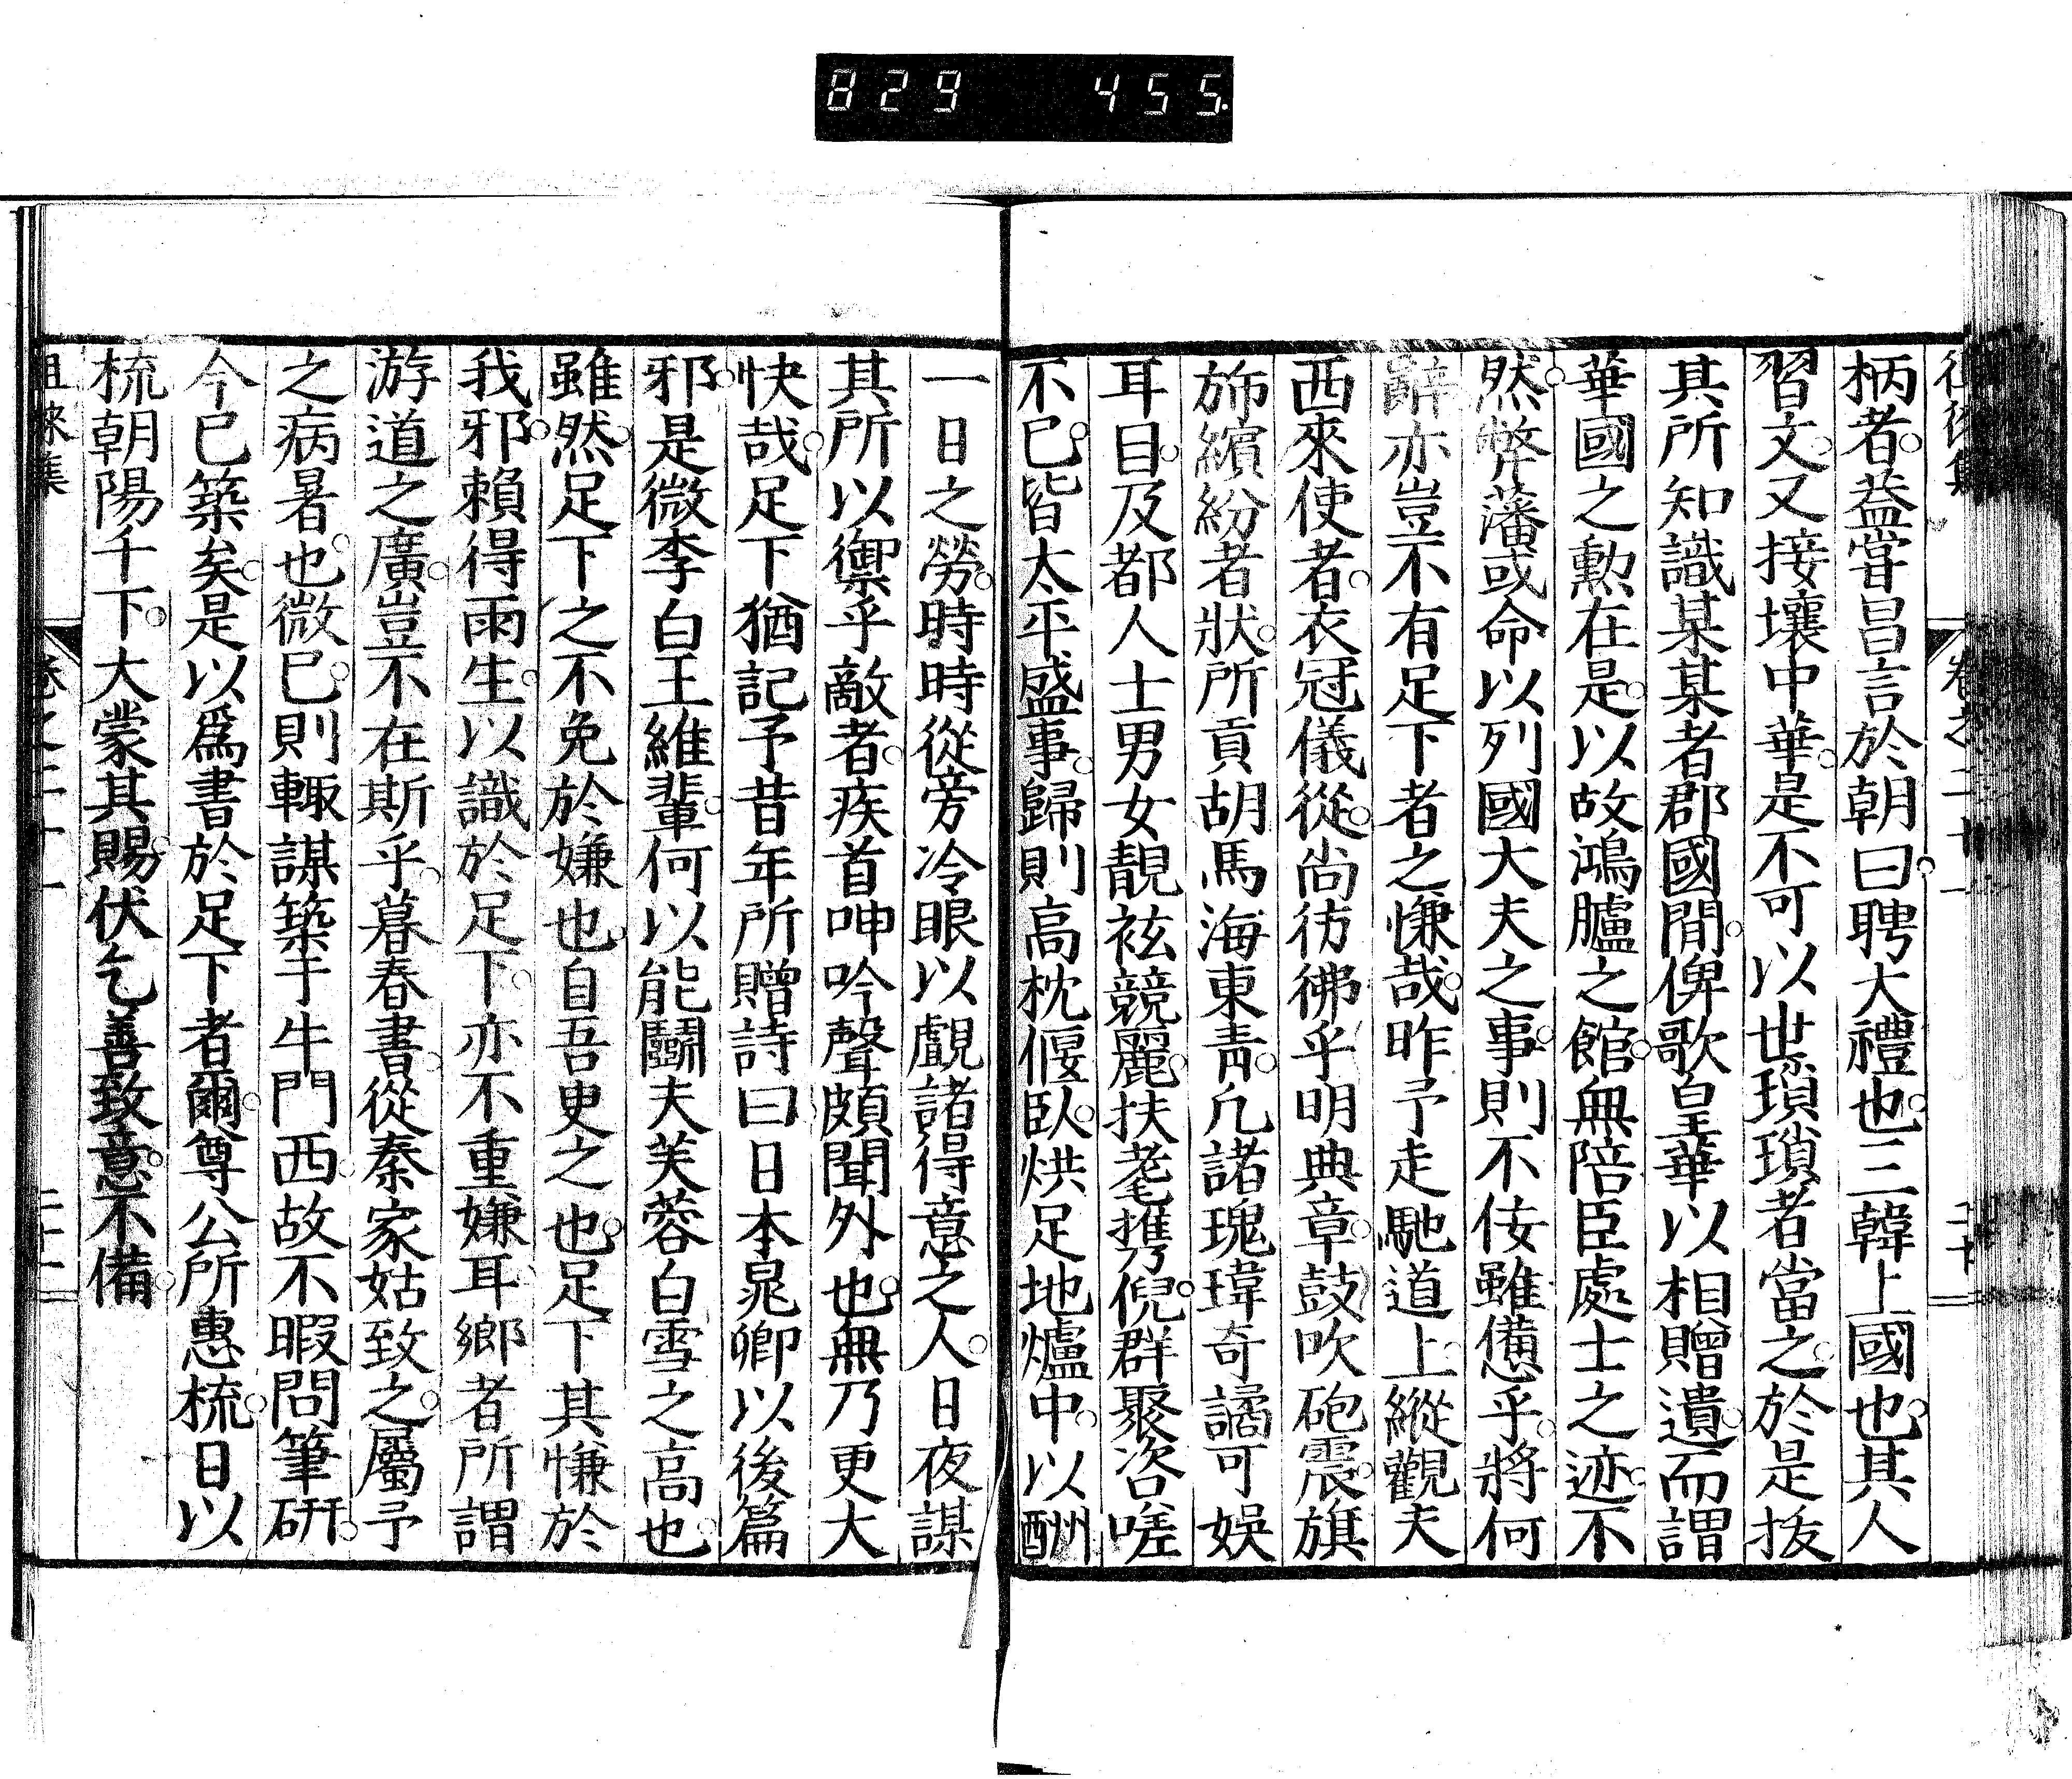 829 455.
柄者。益嘗昌言於朝曰。聘大禮也。三韓上國也。其人
習文。又接壤中華。是不可以世瑣瑣者當之。於是拔
其所知識某某者郡國間。俾歌皇華以相贈遺。而謂
華國之勲在是。以故鴻臚之館。無陪臣處士之迹。不
然。弊藩或命以列國大夫之事。則不佞雖憊乎。將何
辭亦豈不有足下者之慊哉。昨予走馳道上。縱觀夫
西來使者。衣冠儀從。尚彷彿乎明典章。鼓吹砲震。旗
斾繽紛者狀。所貢胡馬海東青。凡諸瑰瑋奇譎可娛
耳目。及都人士男女靚袨競麗。扶耄携倪。群聚咨嗟
不已。皆太平盛事。歸則高枕偃臥。烘足地爐中。以酬
一日之勞。時時從旁冷眼以覷諸得意之人。日夜謀
其所以禦乎敵者。疾首呻吟聲頗聞外也。無乃更大
快哉。足下猶記予昔年所贈詩曰。日本晁卿以後篇
邪。是微李白王維輩。何以能鬭夫芙蓉白雪之高也。
雖然。足下之不免於嫌也。自吾吏之也。足下其慊於
我邪。賴得雨生。以識於足下。亦不重嫌耳。鄉者所謂
游道之廣。豈不在斯乎。暮春書。從秦家姑致之。屬予
之病暑也。微已。則輒謀築于牛門西。故不暇問筆研。
今已築矣。是以爲書於足下者爾。尊公所惠梳。日以
梳朝陽千下。大蒙其賜。伏乞善致意。不備。
徂徠集 卷之二十一